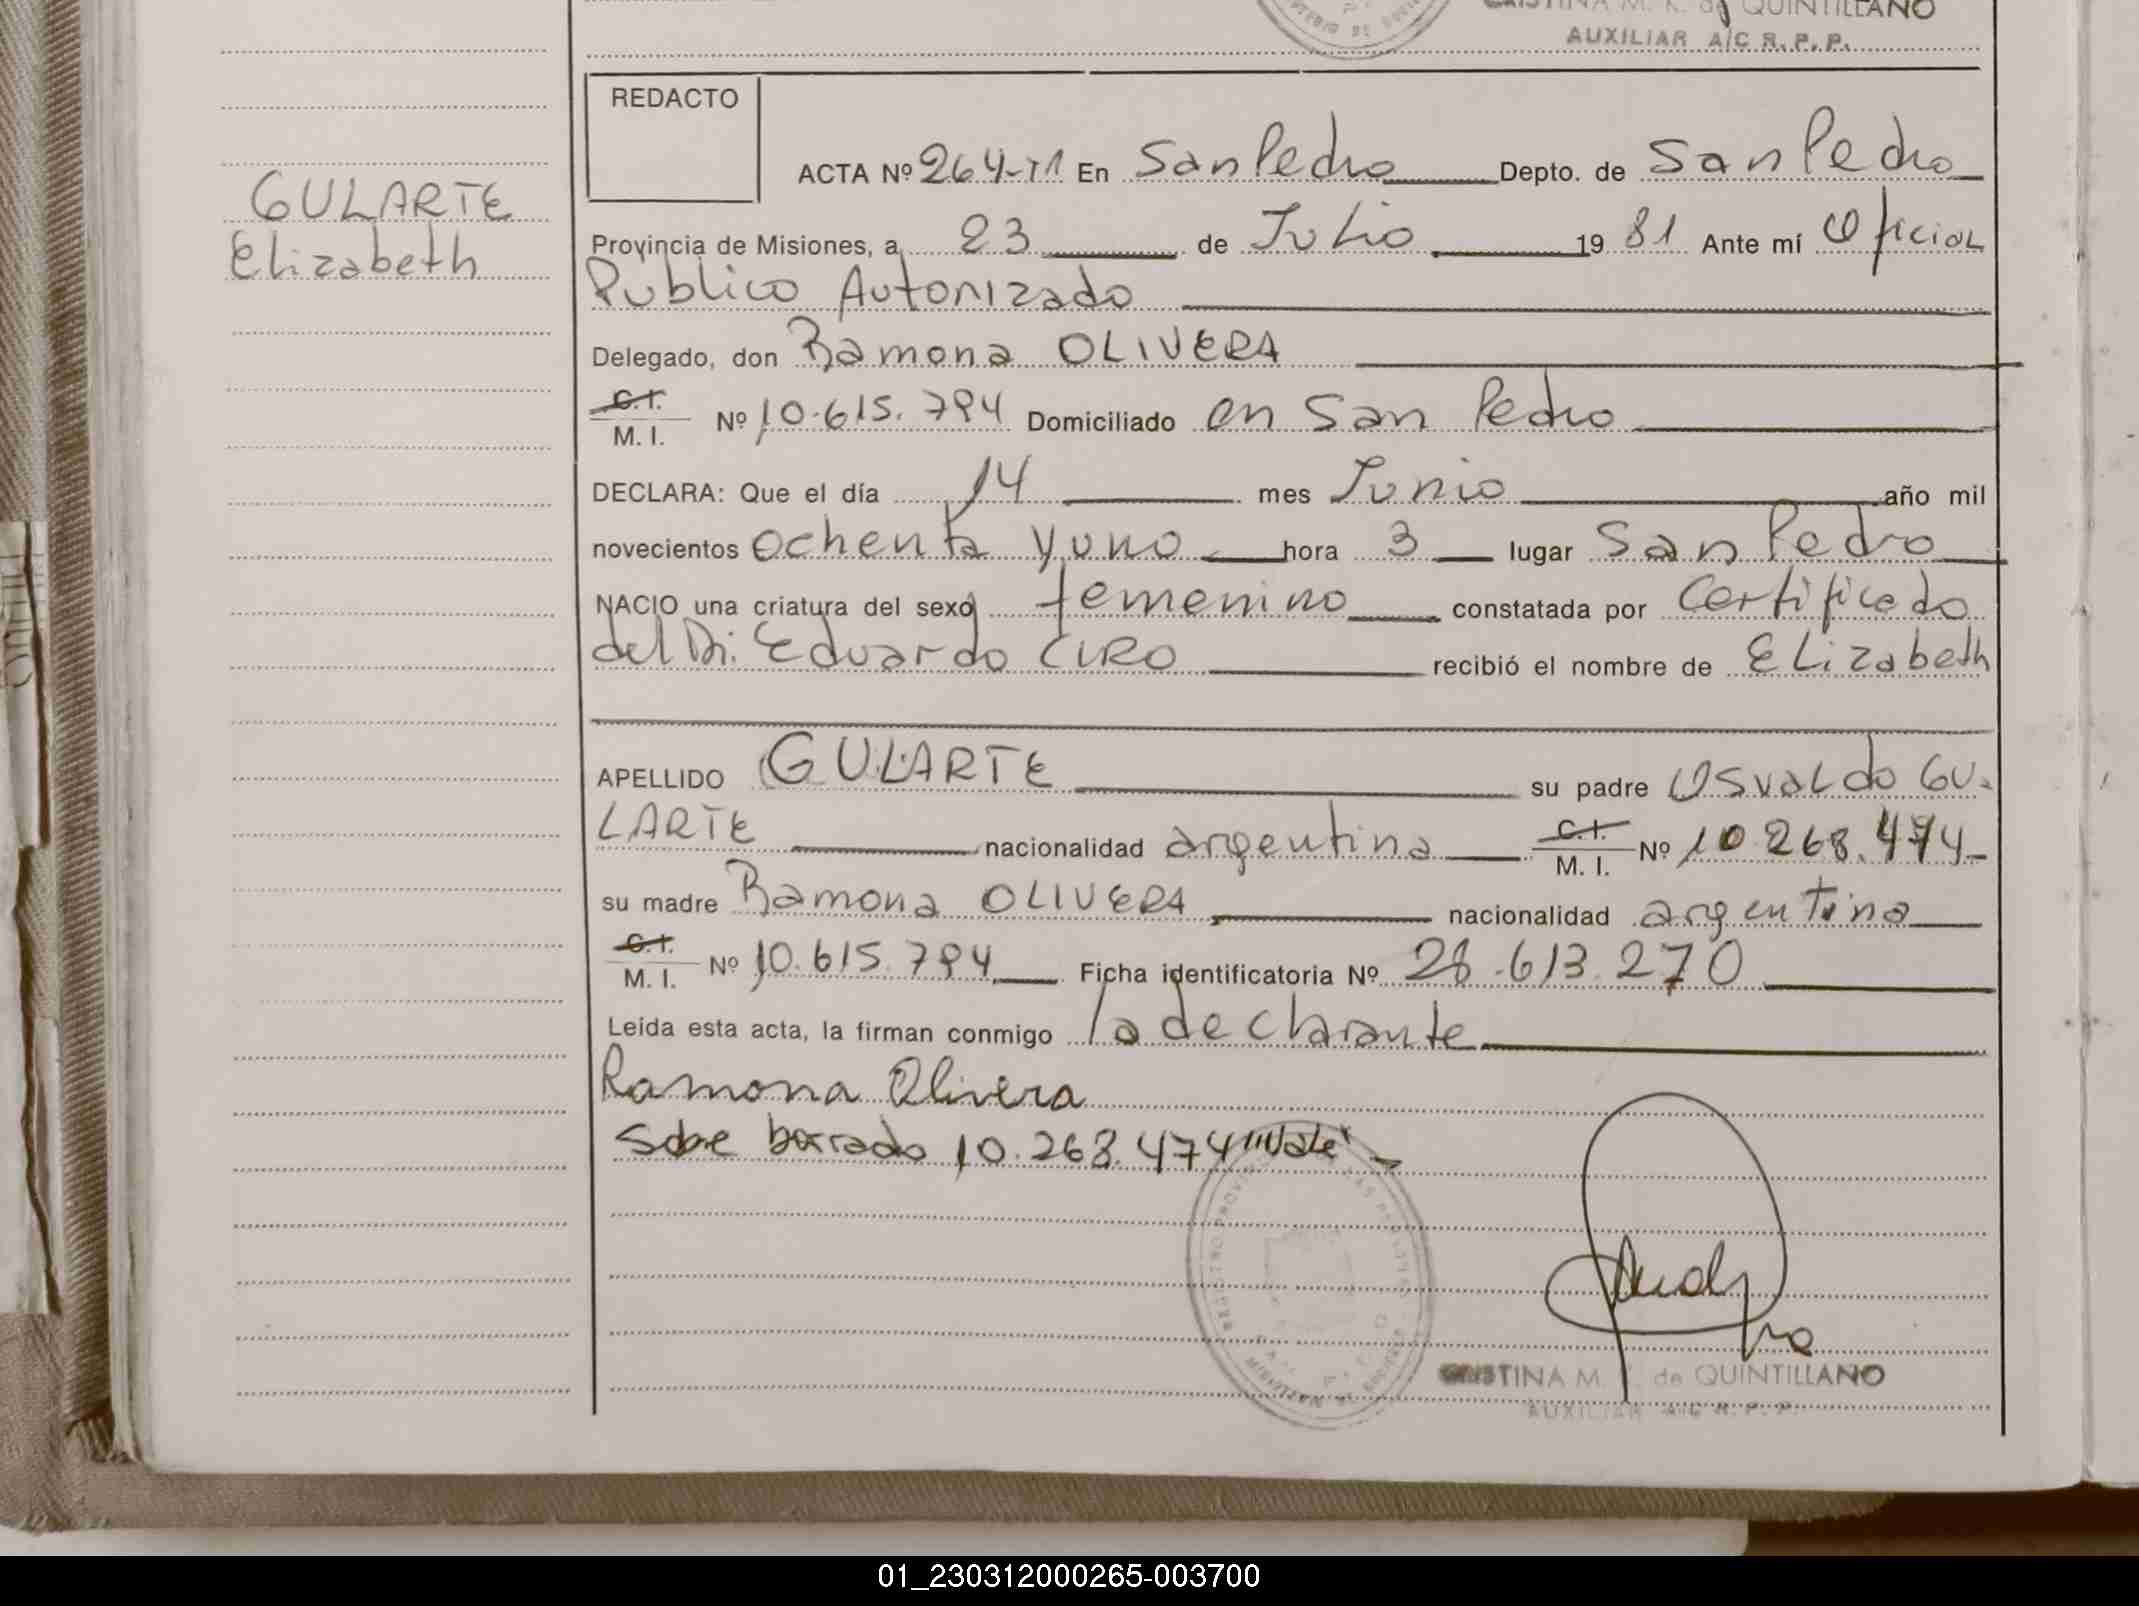 QUINTILLANO
AUXILIAR A/C R. P. P.
REDACTO
ACTA Nº 264-T1 En San Pedro Depto. de San Pedro
GULARTE
Elizabeth
Provincia de Misiones, a 23 de Julio 19 81 Ante mí Oficial
Publico Autorizado
Delegado, don Ramona OLIVERA
C. I.
M. I. Nº 10.615.794 Domiciliado en San Pedro
DECLARA: Que el día 14 mes Junio año mil
novecientos ochenta y uno hora 3 lugar San Pedro
NACIO una criatura del sexo femenino constatada por Certificado
del Dr. Eduardo CIRO recibió el nombre de Elizabeth
APELLIDO GULARTE su padre Osvaldo GU-
LARTE nacionalidad argentina C. I. M. I. Nº 10 268.474
su madre Ramona OLIVERA nacionalidad argentina
C. I.
M. I. Nº 10.615.794 Ficha identificatoria Nº 28.613.270
Leída esta acta, la firman conmigo la declarante
Ramona Olivera
Sobre borrado 10.268.474 "Vale"
CRISTINA M. de QUINTILLANO
AUXILIAR A/C R. P. P.
01_230312000265-003700